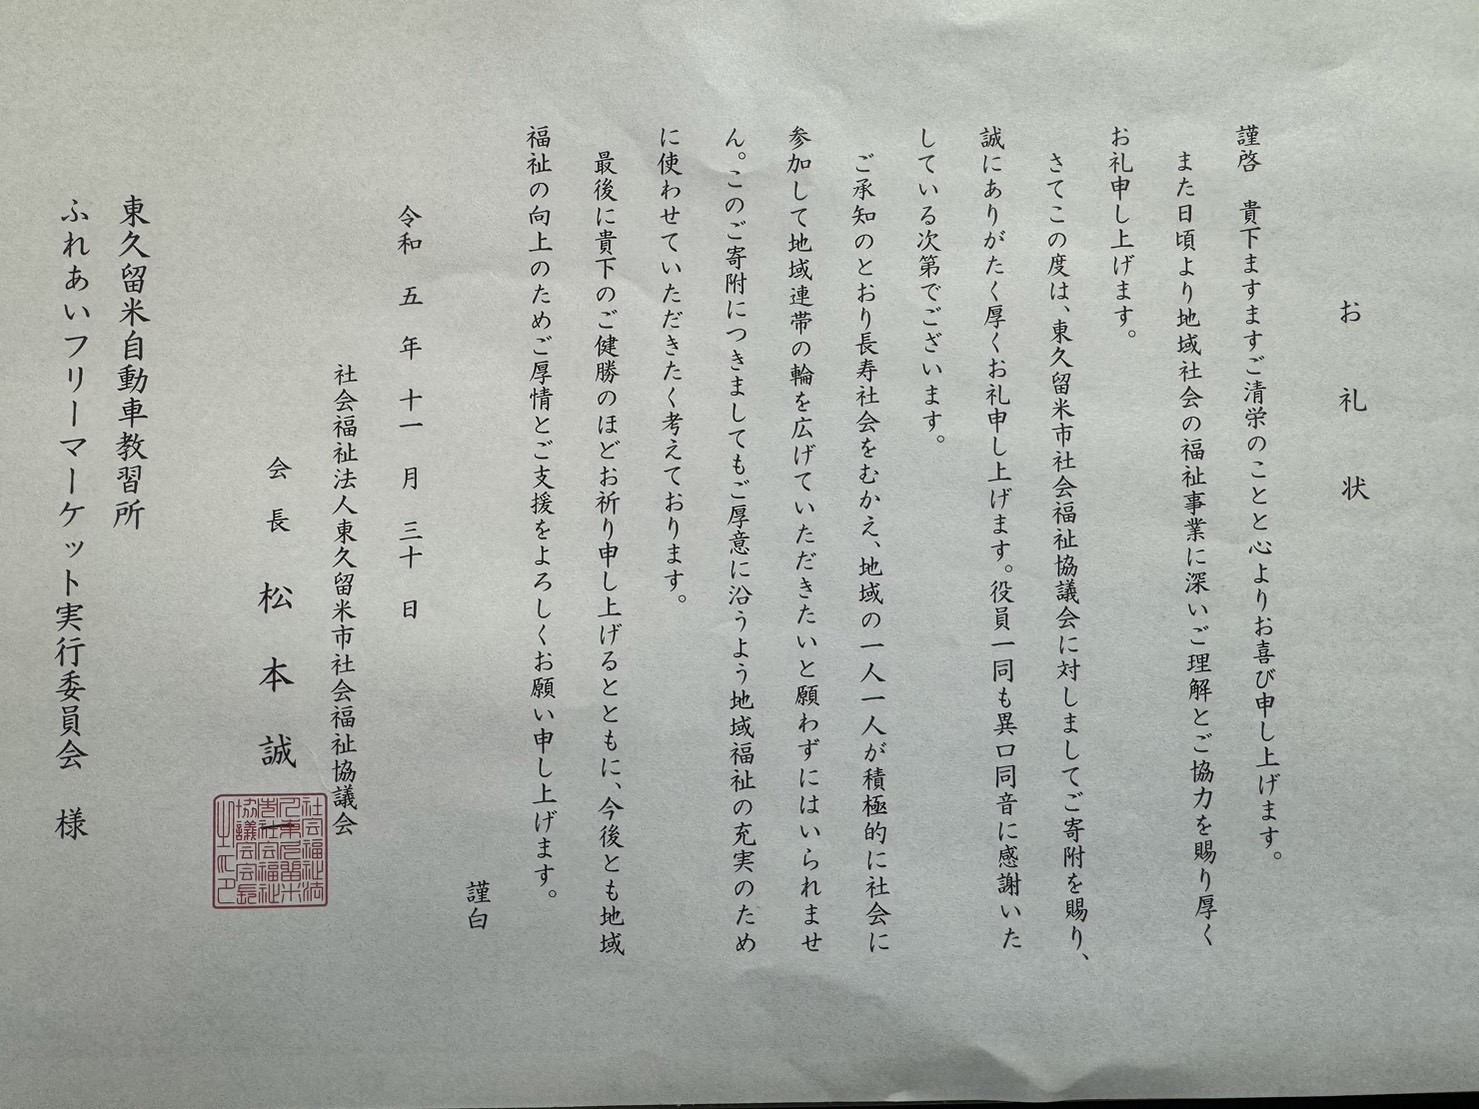 お礼状
謹啓　貴下ますますご清栄のことと心よりお喜び申し上げます。
また日頃より地域社会の福祉事業に深いご理解とご協力を賜り厚く
お礼申し上げます。
さてこの度は、東久留米市社会福祉協議会に対しましてご寄附を賜り、
誠にありがたく厚くお礼申し上げます。役員一同も異口同音に感謝いた
している次第でございます。
ご承知のとおり長寿社会をむかえ、地域の一人一人が積極的に社会に
参加して地域連帯の輪を広げていただきたいと願わずにはいられませ
ん。このご寄附につきましてもご厚意に沿うよう地域福祉の充実のため
に使わせていただきたく考えております。
最後に貴下のご健勝のほどお祈り申し上げるとともに、今後とも地域
福祉の向上のためご厚情とご支援をよろしくお願い申し上げます。
謹白
令和　五　年　十一　月　三十　日
社会福祉法人東久留米市社会福祉協議会
会長　松本誠
社会福祉法
人東久留米
市社会福祉
協議会会長
之印
東久留米自動車教習所
ふれあいフリーマーケット実行委員会　様